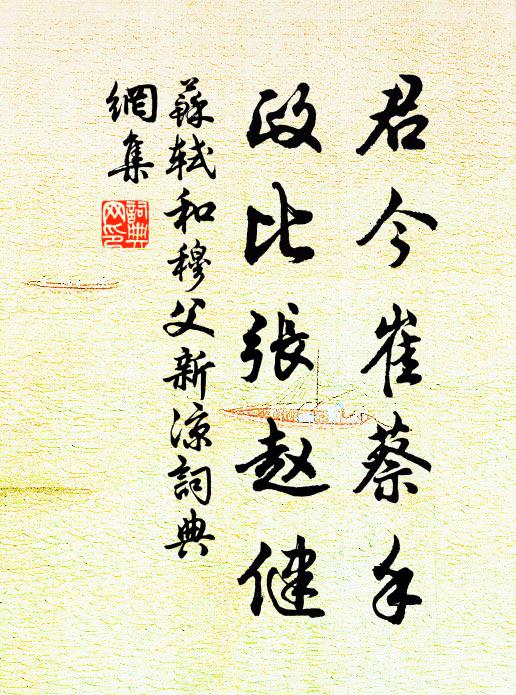 君今崔蔡手
政比張赵健
蘇軾和穆父新凉詞典
網集
詞典
网印